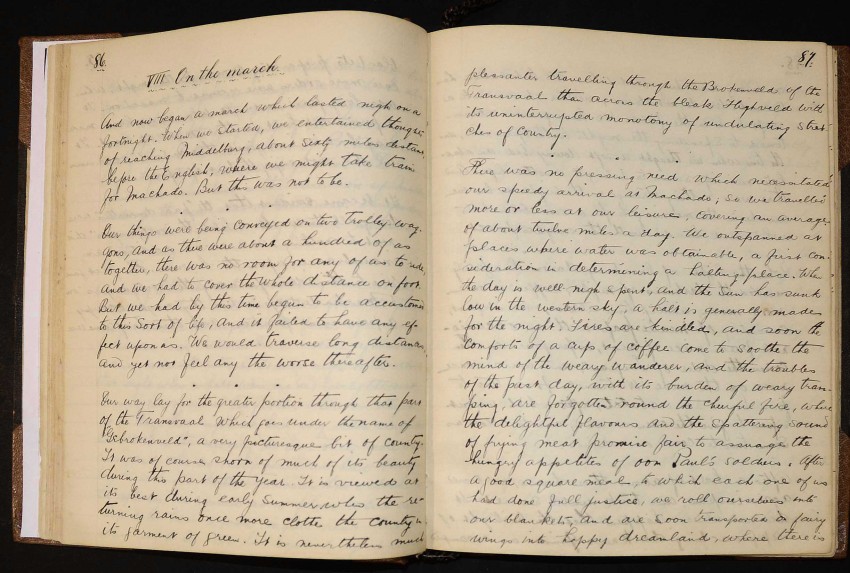 86.
VIII On the march.
And now began a march which lasted nigh on a
fortnight. When we started, we entertained thoughts
of reaching Middelburg, about sixty miles distant,
before the English, where we might take train
for Machado. But this was not to be.
Our things were being conveyed on two trolley wag-
gons, and as there were about a hundred of us
together, there was no room for any of us to ride,
and we had to cover the whole distance on foot.
But we had by this time begun to be accustomed
to this sort of life, and it failed to have any ef-
fect upon us. We would traverse long distances,
and yet not feel any the worse thereafter.
Our way lay for the greater portion through that part
of the Transvaal which goes under the name of
"Gebrokenveld", a very picturesque bit of country.
It was of course shorn of much of its beauty
during this part of the year. It is viewed at
its best during early summer, when the re-
turning rains once more clothe the country in
its garment of green. It is nevertheless much
87.
pleasanter travelling through the Brokenveld of the
Transvaal than across the bleak Highveld with
its uninterrupted monotony of undulating stret-
ches of country.
There was no pressing need which necessitated
our speedy arrival at Machado, so we travelled
more or less at our leisure, covering an average
of about twelve miles a day. We outspanned at
places where water was obtainable, a first con-
sideration in determining a halting-place. When
the day is well nigh spent, and the sun has sunk
low in the western sky, a halt is generally made
for the night. Fires are kindled, and soon the
comforts of a cup of coffee come to soothe the
mind of the weary wanderer, and the troubles
of the past day, with its burden of weary tram-
ping, are forgotten round the cheerful fire, where
the delightful flavours and the spattering sound
of frying meat promise fair to assuage the
hungry appetites of oom Paul's soldiers. After
a good square meal, to which each one of us
had done full justice, we roll ourselves into
our blankets, and are soon transported on fairy
wings into happy dreamland, where there is